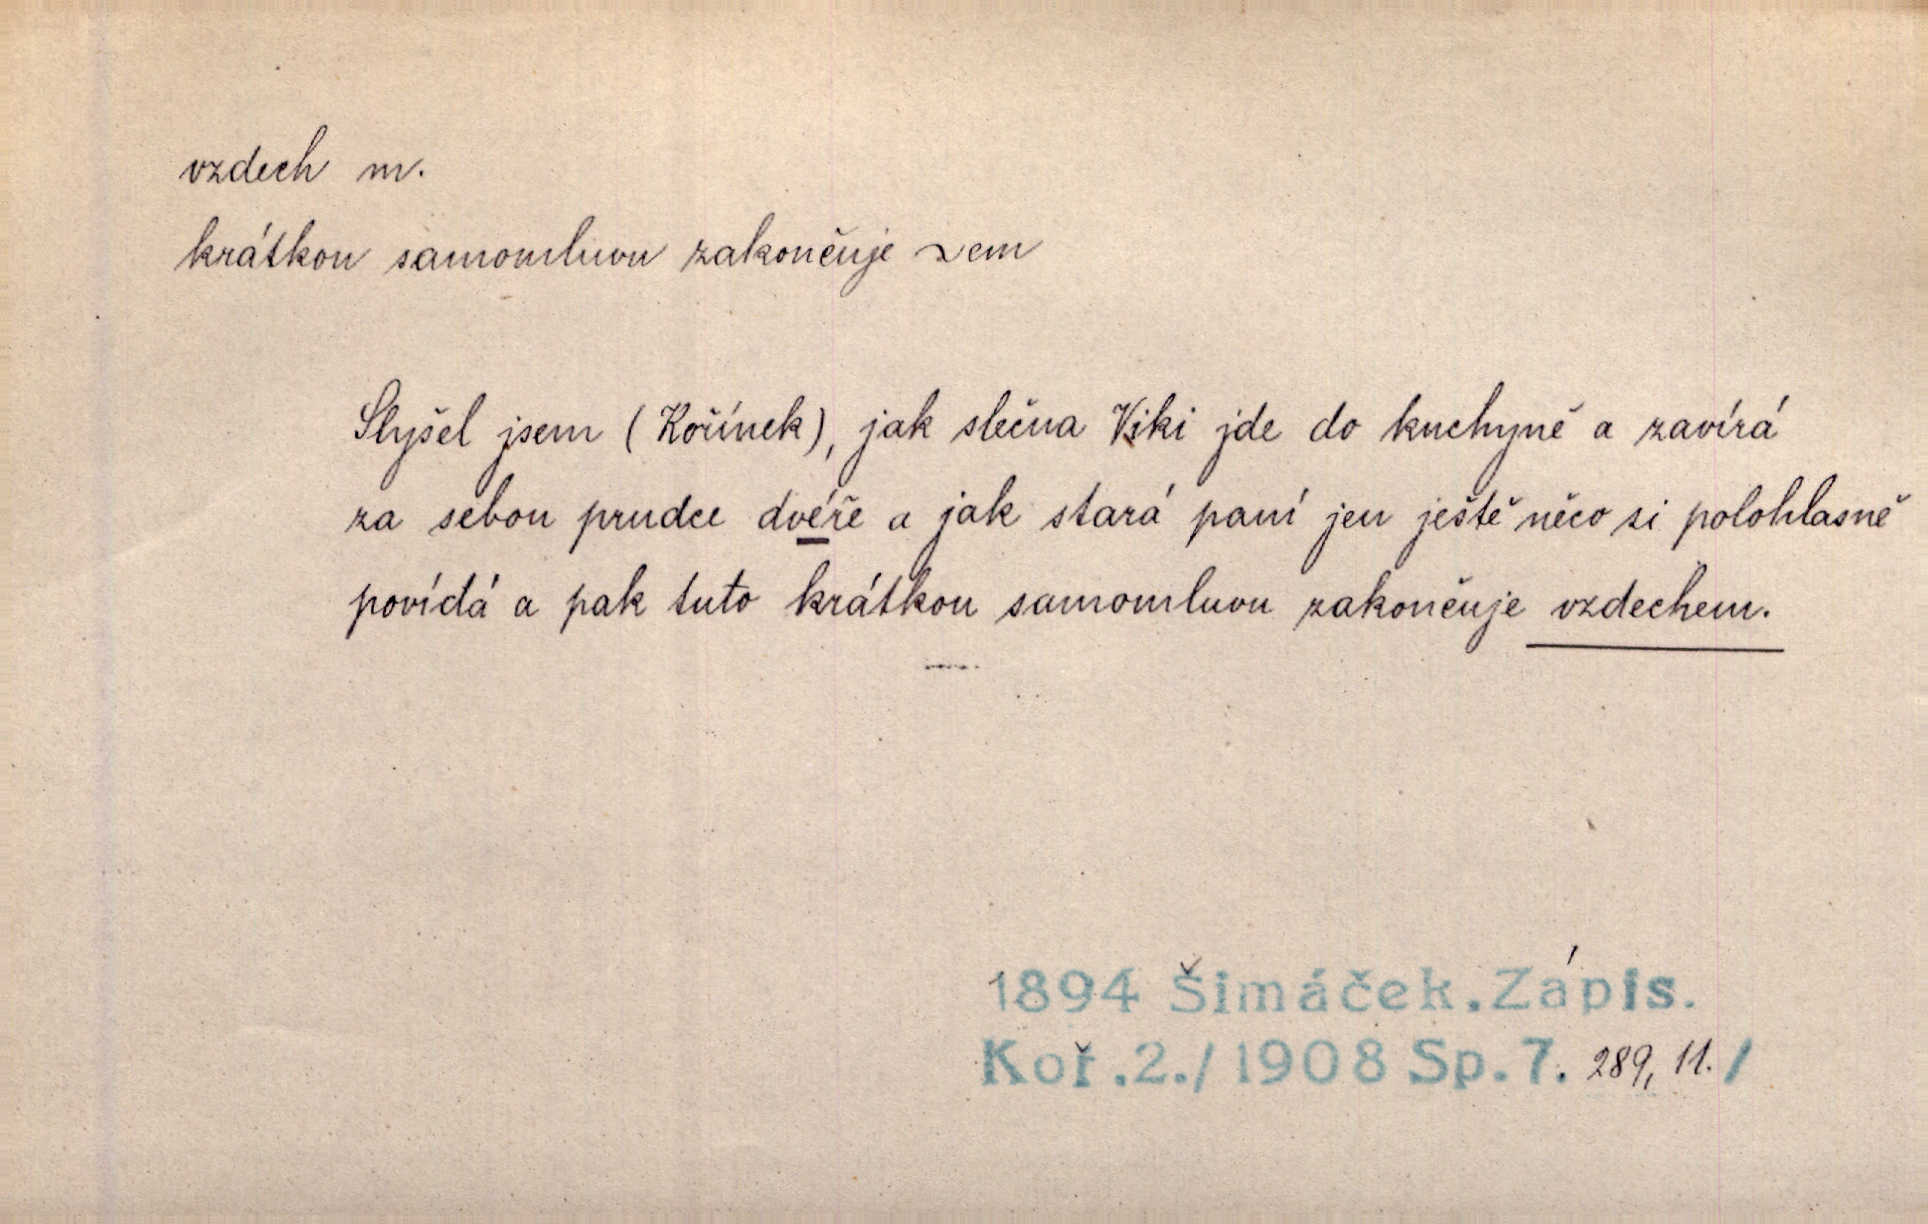 vzdech m.
krátkou samomluvu zakončuje ~em
Slyšel jsem (Kořínek), jak slečna Viki jde do kuchyně a zavírá
za sebou prudce dvéře a jak stará paní jen ještě něco si polohlasně
povídá a pak tuto krátkou samomluvu zakončuje vzdechem.
1894 Šimáček. Zápis.
Koř. 2./1908 Sp. 7. 289, 11. /